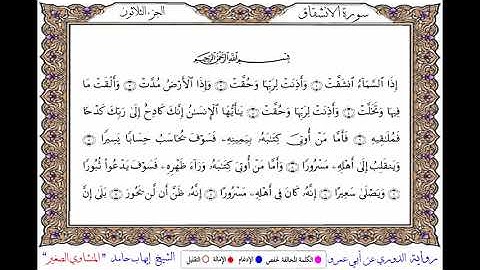 سورة الانشقاق
الجزء الثلاثون
بِسْمِ اللَّهِ الرَّحْمَٰنِ الرَّحِيمِ
إِذَا السَّمَآءُ انشَقَّتْ ۝ وَأَذِنَتْ لِرَبِّهَا وَحُقَّتْ ۝ وَإِذَا الْأَرْضُ مُدَّتْ ۝ وَأَلْقَتْ مَا
فِيهَا وَتَخَلَّتْ ۝ وَأَذِنَتْ لِرَبِّهَا وَحُقَّتْ ۝ يَٰٓأَيُّهَا الْإِنسَٰنُ إِنَّكَ كَادِحٌ إِلَىٰ رَبِّكَ كَدْحًا
فَمُلَٰقِيهِ ۝ فَأَمَّا مَنْ أُوتِىَ كِتَٰبَهُۥ بِيَمِينِهِۦ ۝ فَسَوْفَ يُحَاسَبُ حِسَابًا يَسِيرًا ۝
وَيَنقَلِبُ إِلَىٰ أَهْلِهِۦ مَسْرُورًا ۝ وَأَمَّا مَنْ أُوتِىَ كِتَٰبَهُۥ وَرَآءَ ظَهْرِهِۦ ۝ فَسَوْفَ يَدْعُوا۟ ثُبُورًا
۝ وَيُصَلَّىٰ سَعِيرًا ۝ إِنَّهُۥ كَانَ فِىٓ أَهْلِهِۦ مَسْرُورًا ۝ إِنَّهُۥ ظَنَّ أَن لَّن يَحُورَ ۝ بَلَىٰٓ إِنَّ
رواية الدوري عن أبي عمرو
الكلمة المخالفة لحفص الإدغام الإمالة التقليل
الشيخ إيهاب حامد "المنشاوي الصغير"